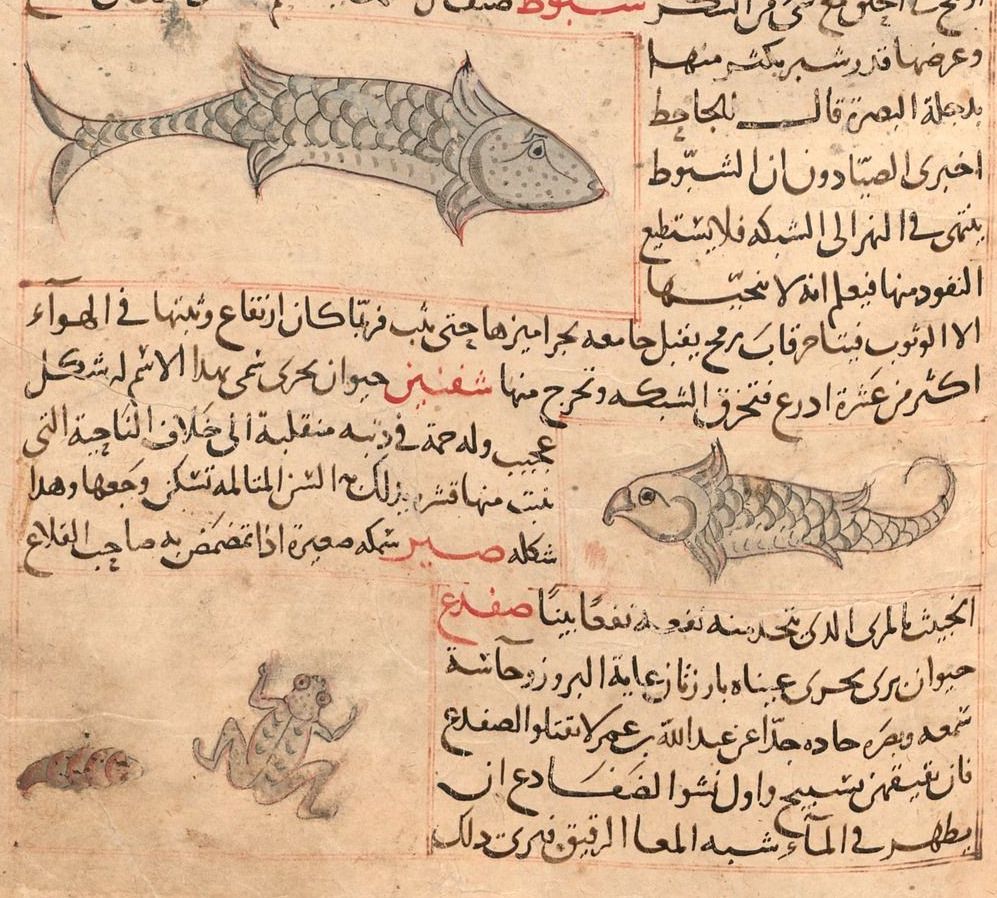 شبوط صنف من السمك
وعرضها قدر شبر يكثر منها
بدجلة البصرة قال الجاحظ
اخبرى الصيّادون ان الشبّوط
ينتهى فى النهر الى الشبكه فلا يستطيع
النفود منها فيعلم انه لا ينجيها
الا الوثوب فيتاخر قاب رمح يقبل جامعه بحراميزها حتى يثب فربّما كان ارتفاع وثبتها فى الهوآء
اكثر من عشرة ادرع فتخرق الشبكه وتخرج منها شفنين حيوان بحرى سمى بهدا الاسم له شكل
عجيب وله حمة فى دنبه منقلبة الى خلاف الناحية التى
ينبت منها قشره بذلك السن المتالمه تسكن وجعها وهدا
شكله صير سمكه صغيرة اذا تمضمض به صاحب القلاع
الخبيث بالمرى الدى يتخد منه نفعه نفعًا بينًا ضفدع
حيوان برى بحرى عيناه بارزتان غاية البروز وحآسّة
سمعه وبصره حاده جدّا عن عبد الله بن عمر لا تقتلوا الضفدع
فان نقيقهن تسبيح واول نشوا الضفادع ان
يظهر فى المآء شبه المعا الرقيق فيرى دلك